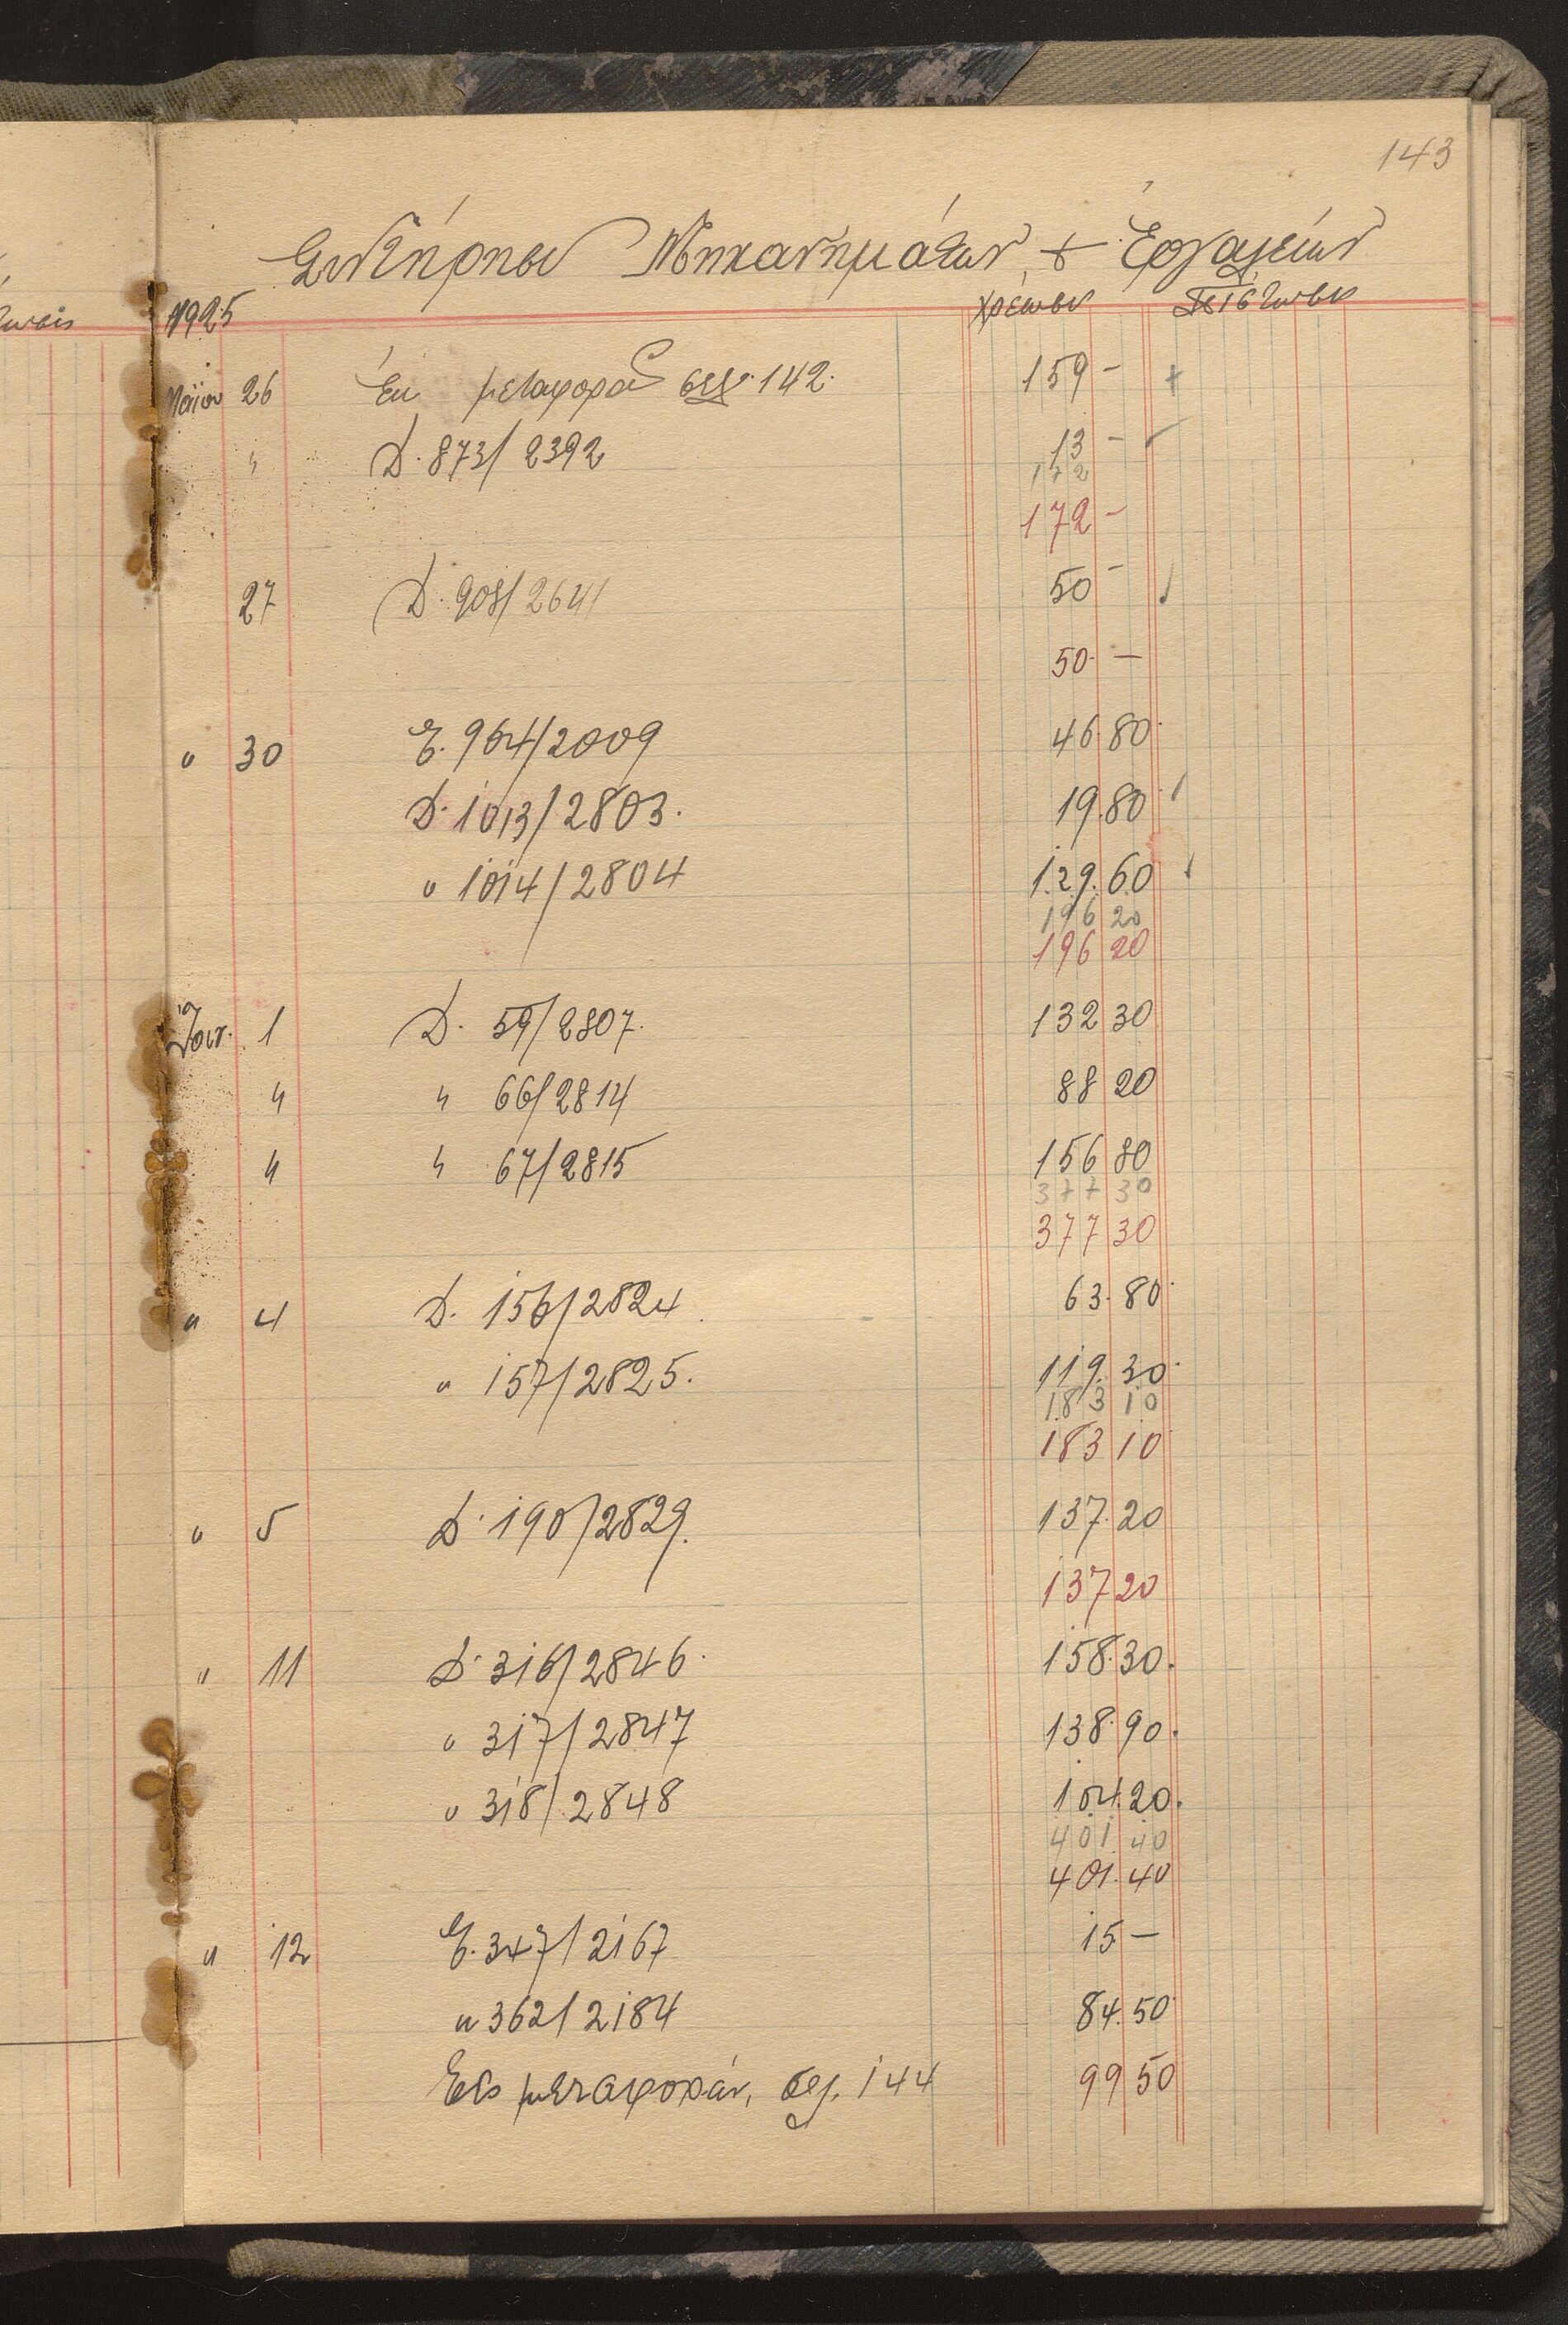 143
Συντήρησις Μηχανημάτων & Ἐργαλείων
1925 Χρέωσις Πίστωσις
Μαΐου 26 Ἐκ μεταφορᾶς σελ. 142. 159 -
" D. 873/2392 13 -
172
172 -
27 D. 908/2641 50 -
50 -
" 30 Ε. 964/2009 46.80
D. 1013/2803. 19.80
" 1014/2804 129.60
196 20
196 20
Ἰουν. 1 D. 59/2807. 132 30
" " 66/2814 88 20
" " 67/2815 156 80
377 30
377 30
" 4 D. 156/2824 63.80
" 157/2825. 119.30
183 10
183 10
" 5 D. 190/2829. 137.20
137 20
" 11 D. 316/2846. 158.30.
" 317/2847 138.90.
" 318/2848 104.20.
401 40
401.40
" 12 Ε. 347/2167 15 -
" 362/2184 84.50
Εἰς μεταφοράν, σελ. 144 99 50